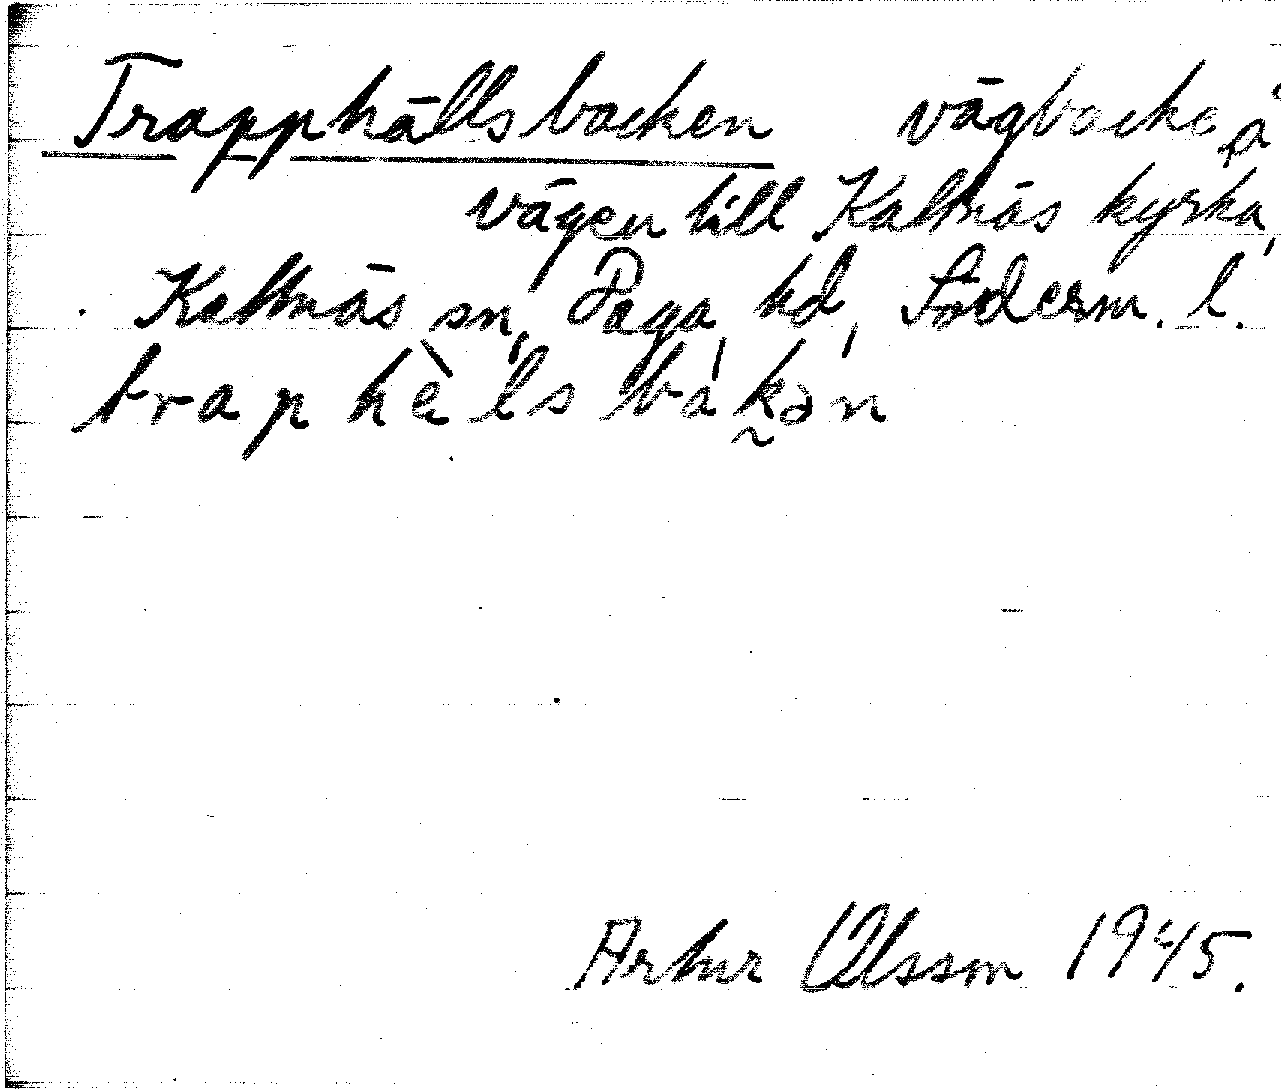 Trapphällsbacken vägbacke på
vägen till Kattnäs kyrka,
Kattnäs sn, Daga hd, Söderm. l.
trap hè ls bákən
Artur Olsson 1945.